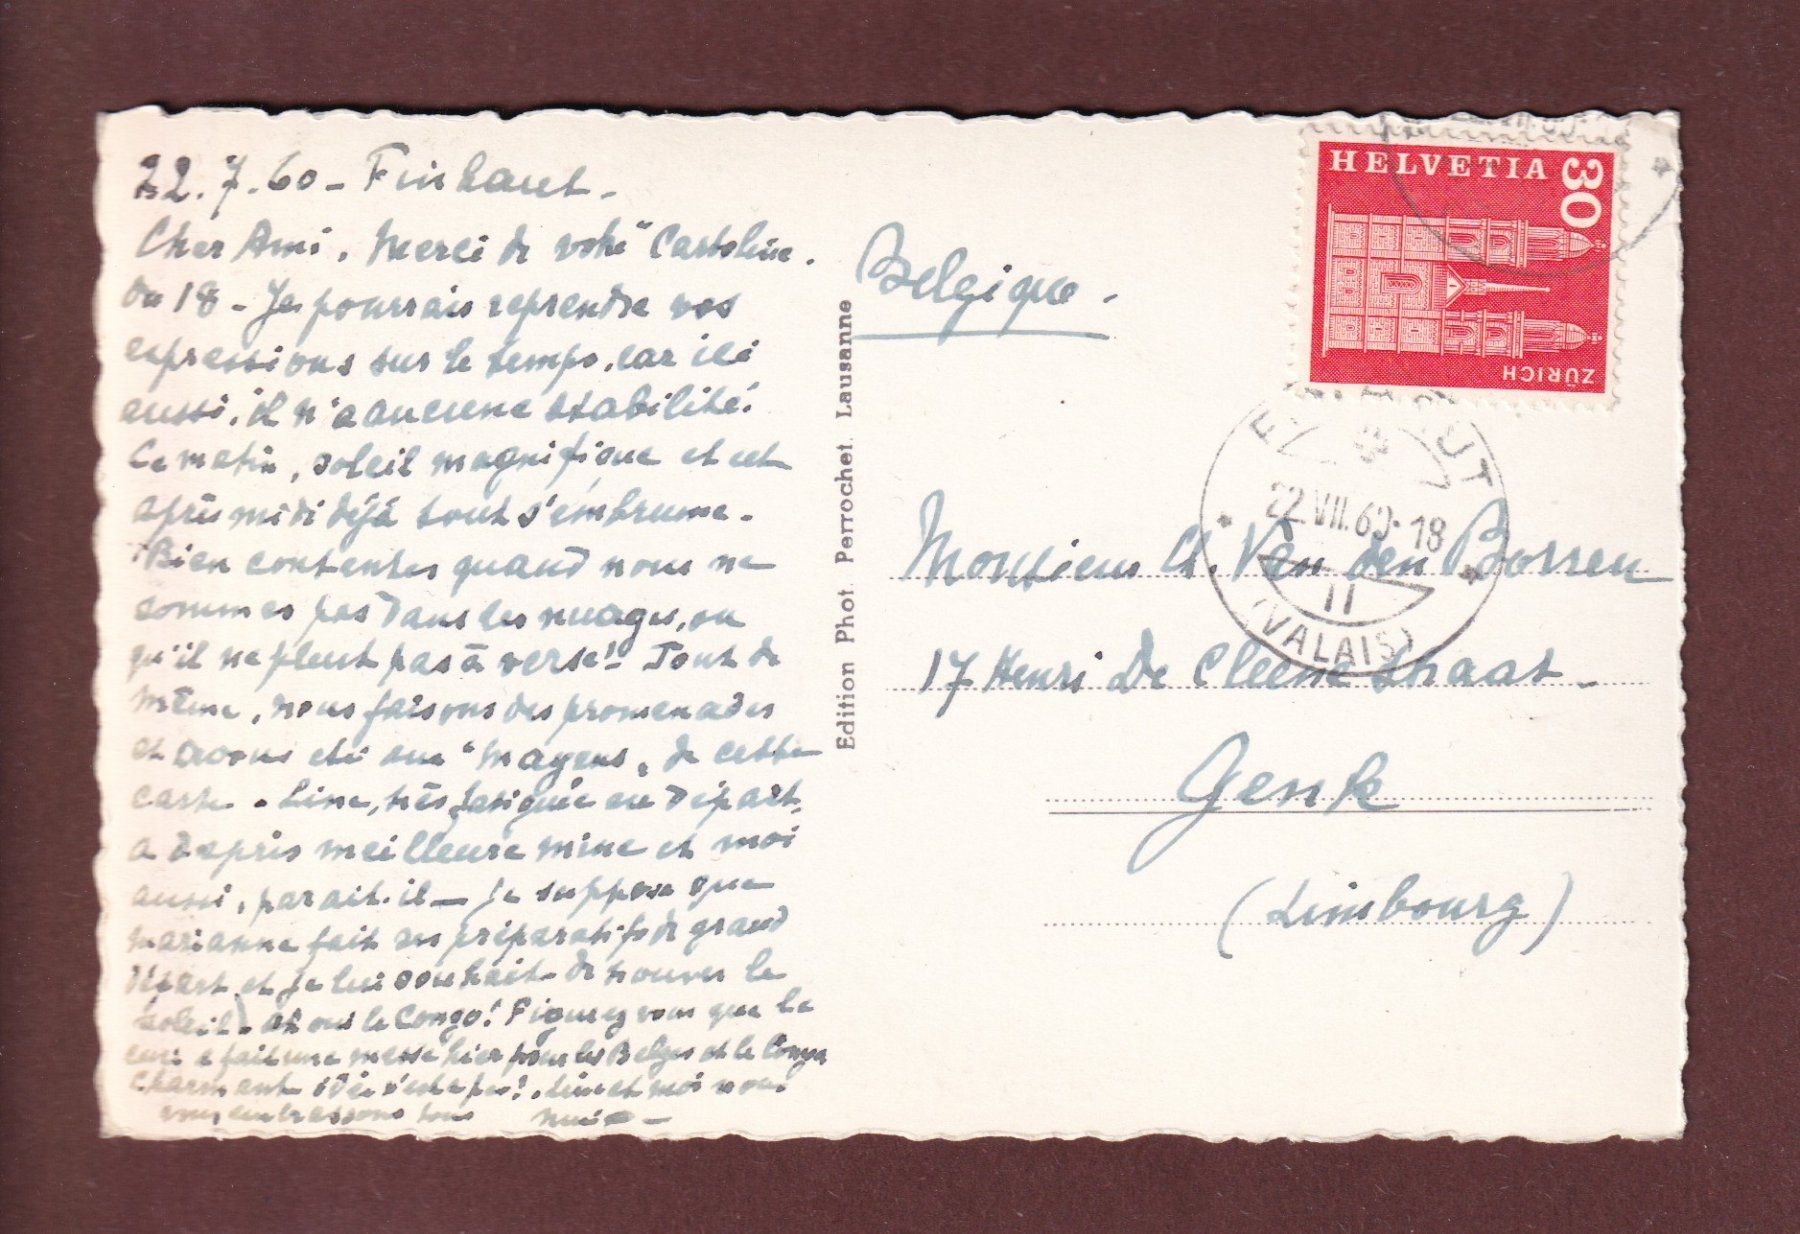 22.7.60 - Finhaut -
Cher Ami. Merci de votre "Cartoline.
du 18 - Je pourrais reprendre vos
expressions sur le temps, car ici
aussi, il n'a aucune stabilité.
Ce matin, soleil magnifique et cet
après midi déjà tout s'embrume.
Bien contentes quand nous ne
sommes pas dans les nuages, ou
qu'il ne pleut pas à verse! - Tout de
même, nous faisons des promenades
et avons été aux "Mayens" de cette
carte - Line, très fatiguée au départ,
a depris meilleure mine et moi
aussi, parait-il - Je suppose que
Marianne fait ses préparatifs de grand
départ et je lui souhaite de trouver le
soleil - Et ous le Congo! Figurez vous que le
curé a fait une messe hier pour les Belges et le Congo
Charmante idée n'est-ce pas!. Line et moi vous
vous embrassons tous
Edition Phot. Perrochet. Lausanne
Belgique.
HELVETIA
30
ZÜRICH
22.VII.60-18
11
(VALAIS)
Monsieur Ch. Van den Borren
17 Henri De Cleene straat -
Genk
(Limbourg)